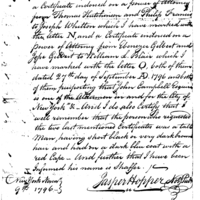 a Certificate indorsed on a power of Attorney
from Thomas Hutchinson and Philip Francis
to Joseph Wharton which I have marked with
the letter N, and a Certificate indorsed on a
power of Attorney from Ebenezer Gilbert and
Jesse Gilbert to William D. which I
have marked with the letter O, both of them
dated 27th day of September AD 1796 and both
of them purporting that John Campbell Esqr. was
one of the Aldermen in and for the city of
New York &. And I do also Certify that I
well remember that the person who requested
the two last mentioned Certificates was a tall
Man, having short black or very dark brown
hair and had on a dark blue coat with a
red Cape — And further that I have been
informed his name is Shaffer.
New York
9th 1796
Jasper Hopper